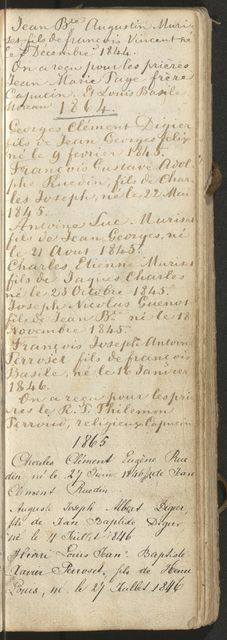 Jean Bte Augustin Muri-
set, fils de françois Vincent né
le Décembre 1844.
On a reçu pour les prières
Jean Marie Page frère
Capucin. Et Louis Basile
1864.
Georges Clément Digier
fils de Jean Georges felix
né le 9 février 1845.
François Gustave Adol-
phe Ruedin, fils de Char-
les Joseph, né le 22 Mai
1845.
Antoine Luc Muriset
fils de Jean Georges, né
le 21 Aout 1845.
Charles Etienne Muriset
fils de Jaques Charles
né le 23 Octobre 1845.
Joseph Nicolas Guenot
fils de Jean Bte né le 18
Novembre 1845.
François Joseph Antoine
Perroset fils de françois
Basile, né le 16 Janvier
1846.
On a reçu pour les priè
res le R. P. Philemon
Perroud, religieux Capucin
1865
Charles Clément Eugène Rue
din né le 27 Juin 1846, de Jean
Clément Ruedin.
Auguste Joseph Albert Digier,
fils de Jean Baptiste Digier,
né le 4 Juillet 1846
Henri Louis Jean Baptiste
Xavier Perroset, fils de Henri
Louis, né le 27 Juillet 1846